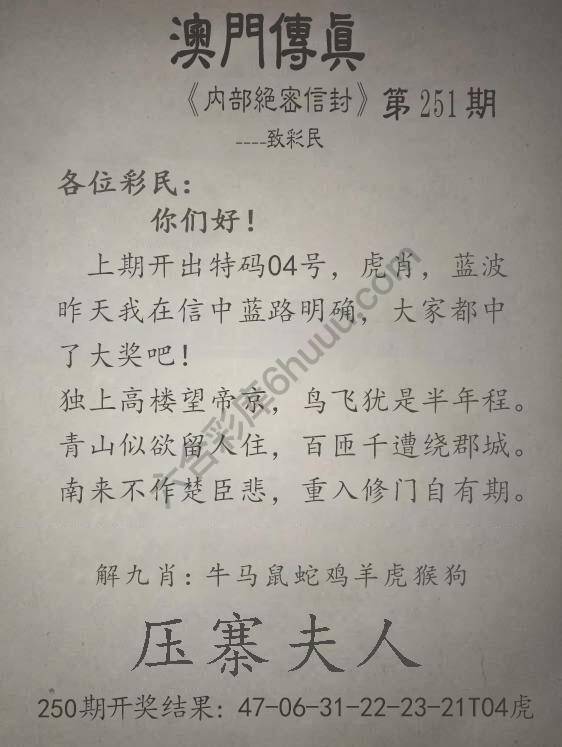 澳門傳眞
《内部絕密信封》第251期
----致彩民
各位彩民：
你们好！
上期开出特码04号，虎肖，蓝波
昨天我在信中蓝路明确，大家都中
了大奖吧！
独上高楼望帝京，鸟飞犹是半年程。
青山似欲留人住，百匝千遭绕郡城。
南来不作楚臣悲，重入修门自有期。
解九肖：牛马鼠蛇鸡羊虎猴狗
压寨夫人
250期开奖结果：47-06-31-22-23-21T04虎
六合彩库6huuu.com